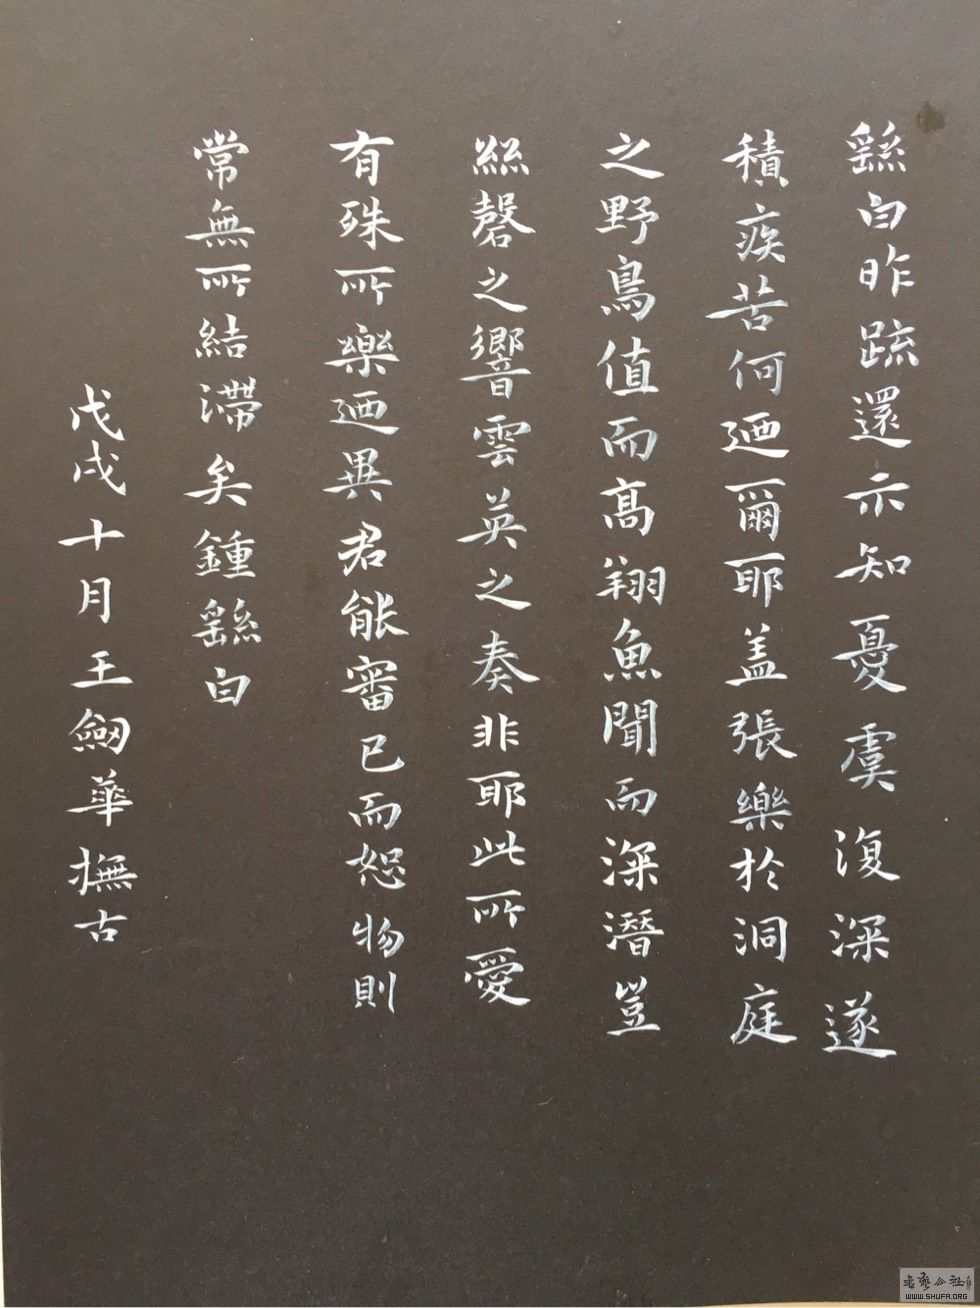 繇白昨疏還示知憂虞復深遂
積疾苦何迺爾耶盖張樂於洞庭
之野鳥值而高翔魚聞而深潛豈
絲磬之響雲英之奏非耶此所愛
有殊所樂迺異君能審己而恕物則
常無所結滯矣鍾繇白
戊戌十月王劔華撫古
書藝公社
WWW.SHUFA.ORG